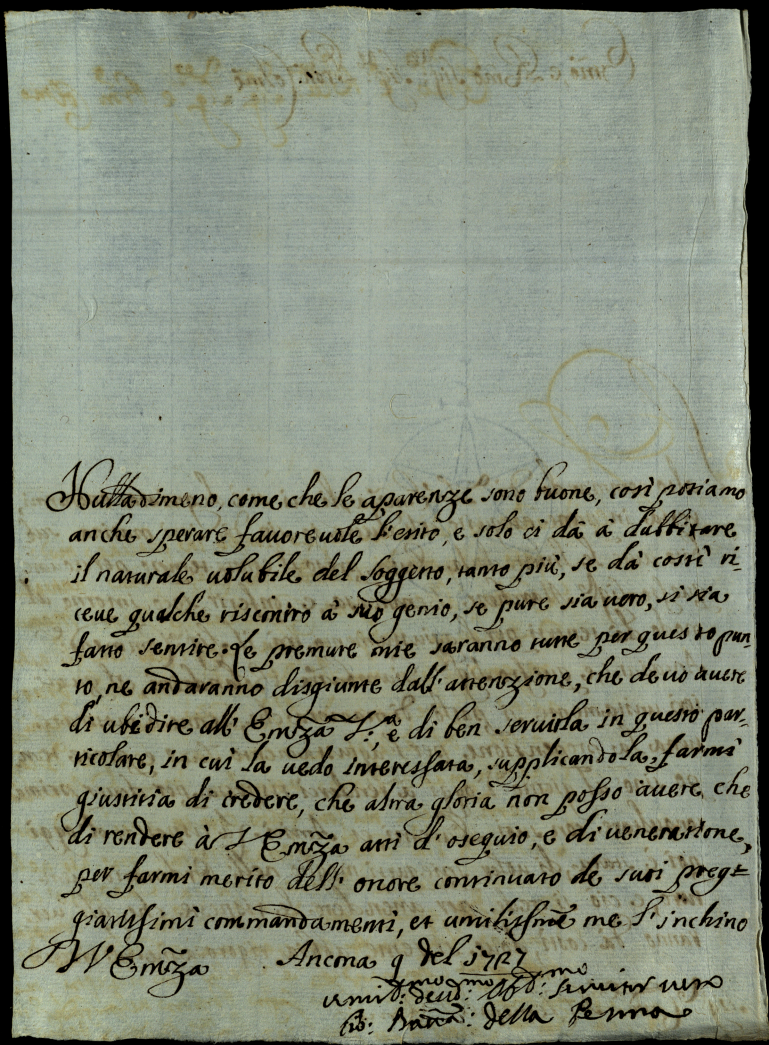 Nulladimeno, come che le aparenze sono buone, così posiamo
anche sperare favorevole l'esito, e solo ci dà à dubbitare
il naturale volubile del soggetto, tanto più, se dà costì ri-
ceve qualche riscontro à suo genio, se pure sia vero, si sia
fatto sentire. Le premure mie saranno tutte per questo pun-
to, ne andaranno disgiunte dall'attenzione, che devo avere
di ubidire all' Emza V.a, e di ben servirla in questo par-
ticolare, in cui la vedo interessata, supplicandola, farmi
giustitia di credere, che altra gloria non posso avere, che
di rendere à V Emza atti d'osequio, e di veneratione,
per farmi merito dell'onore continuato de suoi preg-
giatissimi commandamenti, et umilissme me l'inchino
Emza Ancona 9 del 1727
umil:mo devo:mo obd:mo servitor vero
Gio: Batta: della Penna